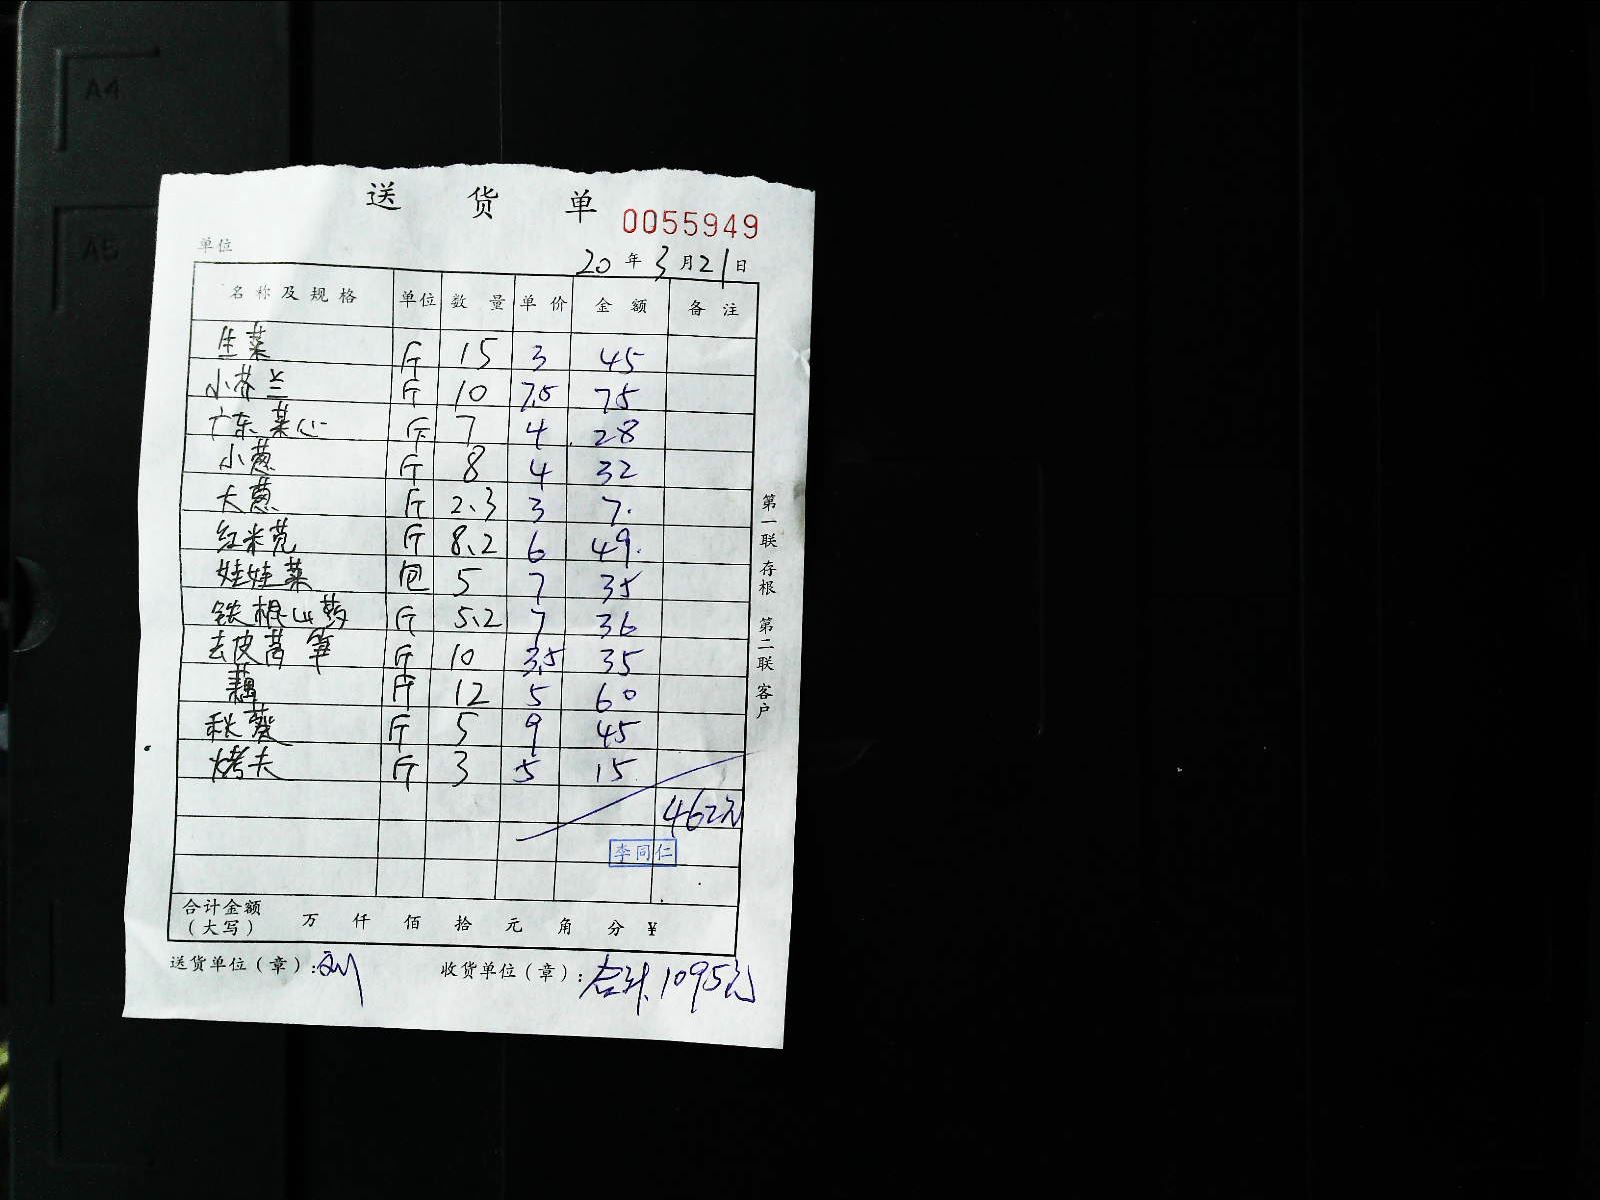 A4
A5
送 货 单
0055949
单位
20 年 3 月 21 日
名称及规格 单位 数量 单价 金额 备注
生菜 斤 15 3 45
小芥兰 斤 10 7.5 75
广东菜心 斤 7 4 28
小葱 斤 8 4 32
大葱 斤 2.3 3 7.
红米苋 斤 8.2 6 49.
娃娃菜 包 5 7 35
铁棍山药 斤 5.2 7 36
去皮莴笋 斤 10 3.5 35
藕 斤 12 5 60
秋葵 斤 5 9 45
烤夫 斤 3 5 15
462元
李同仁
合计金额
(大写) 万 仟 佰 拾 元 角 分 ¥
送货单位(章):刘 收货单位(章):合计.1095元
第一联 存根 第二联 客户